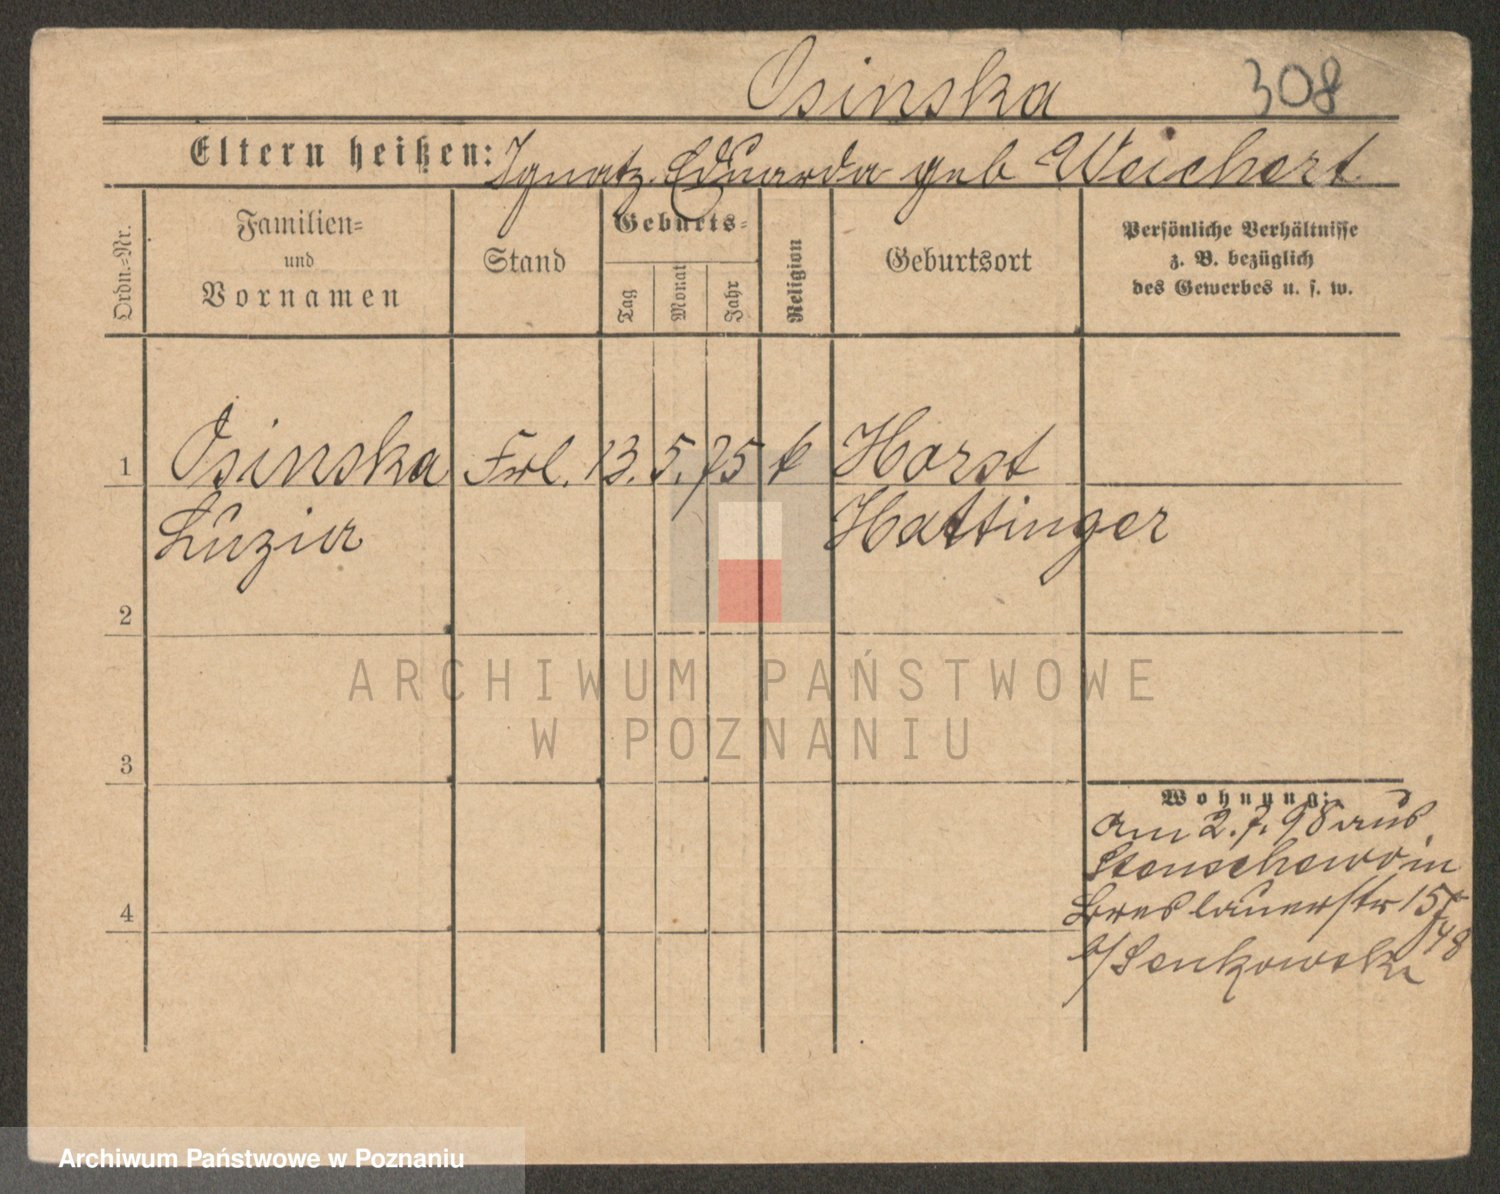 Osinska 308
Eltern heißen: Ignatz. Eduarda geb Weichert
Ordn.=Nr.
Familien=
und
Vornamen
Stand
Geburts=
Tag
Monat
Jahr
Religion
Geburtsort
Persönliche Verhältnisse
z. B. bezüglich
des Gewerbes u. s. w.
1 Osinska Frl. 13. 5. 75 k Horst
Luzia Hattinger
2
3
4
ARCHIWUM PAŃSTWOWE
W POZNANIU
Wohnung:
am 2. 7. 98 aus
Stenschewo in
Breslauerstr 15
b/
Archiwum Państwowe w Poznaniu